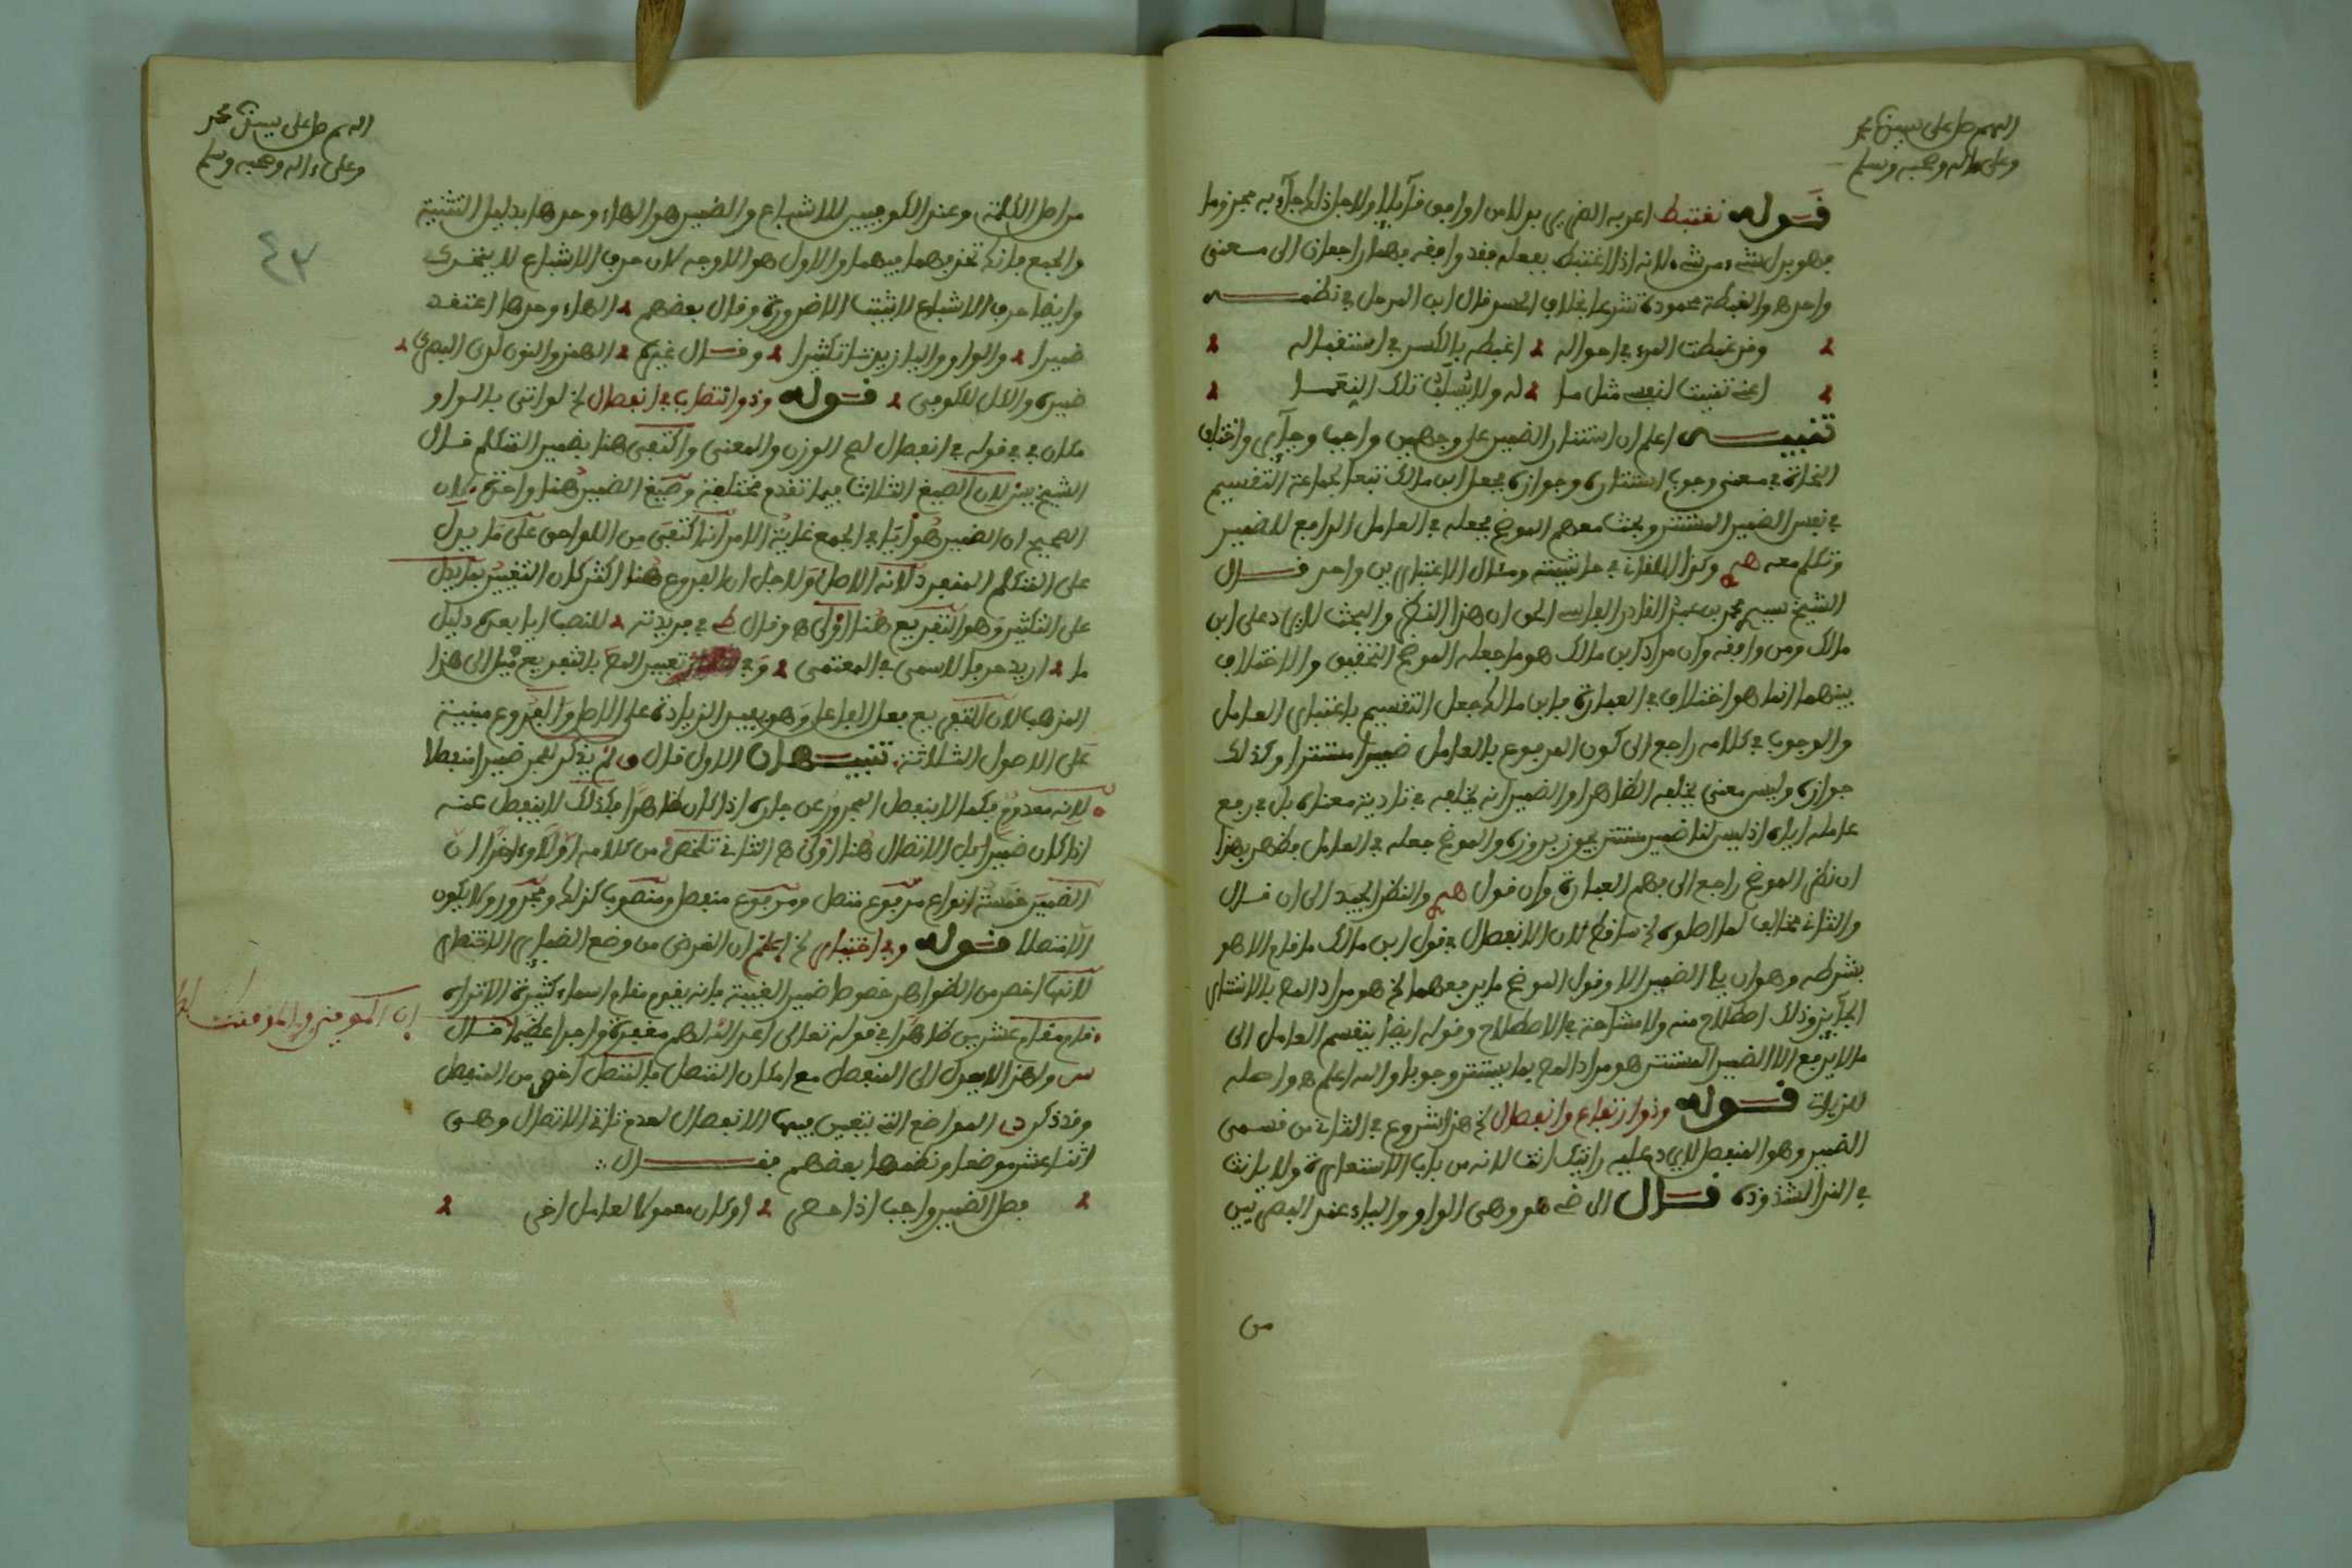 اللهم صل على سيدنا محمد
وعلى ءاله وصحبه وسلم
قوله نغتبط اعربه بدلا من اوافق قائلا ولاجل ذلك جاء به مجزوما
فهو بدل شيء من شيء لانه اذا اغتبط بفعله فقد وافقه فهما راجعان الى معنى
واحد والغبطة محمودة شرعا بخلاف الحسد قال ابن المرحل في نظمه
وقد غبطت المرء في احواله اغبطه بالكسر في استقباله
اعني تمنيت لنفسي مثل ما له ولا يسلب تلك النعما
تنبيه اعلم ان استتار الضمير على وجهين واجبا وجائزا واختلف
النحاة في معنى وجوب استتاره وجوازه فجعل ابن مالك تبعا لجماعة التقسيم
في نفس الضمير المستتر وبحث معهم الموضح فجعله في العامل الرافع للضمير
وتكلم معه وكذا اللقاني في حاشيته ومثال الاعتبارين واحد قال
الشيخ سيدي محمد بن عبد القادر الفاسي الحق ان هذا النظر والبحث لا يرد على ابن
مالك ومن وافقه وان مراد ابن مالك هو ما جعله الموضح التحقيق والاختلاف
بينهما انما هو اختلاف في العبارة فابن مالك جعل التقسيم باعتبار العامل
والوجوب في كلامه راجع الى كون المرفوع بالعامل ضميرا مستترا وكذلك
جوازه وليس معنى يخلفه الظاهر او الضمير انه يخلفه في تادية معناه بل في رفع
عامله اياه اذ ليس لنا ضمير مستتر يجوز بروزه والموضح جعله في العامل فظهر بهذا
ان نظر الموضح راجع الى فهم العبارة وان قول والنظر الجيد الى ان قال
والثاني مخالف لما اصلوه الخ ساقط لان الانفصال في قول ابن مالك ما قام الا هو
بشرطه وهو ان يلي الضمير الا وقول الموضح ما يرفعهما الخ هو مراد المص بالاستتار
الجائز وذلك اصطلاح منه ولا مشاحة في الاصطلاح وقوله ايضا ينقسم العامل الى
ما لا يرفع الا الضمير المستتر هو مراد المص بما يستتر وجوبا والله اعلم واصله
للزيات قوله وذو ارتفاع وانفصال الخ هذا شروع في الثاني من قسمي
الضمير وهو المنفصل لا يرد عليه رايتك انت لانه من باب الاستعارة ولا يا انت
في الندا لشذوذه قال الرضي هو وهي الواو والياء عند البصريين
من
اللهم صل على سيدنا محمد
وعلى ءاله وصحبه وسلم
٤٣
من اصل الكلمة وعند الكوفيين للاشباع والضمير هو الهاء وحدها بدليل التثنية
والجمع فانك تحذفهما فيهما والاول هو الاوجه لان حرف الاشباع لا يتحرك
وايضا حرف الاشباع لا يثبت الا ضرورة وقال بعضهم الهاء وحدها اعتقد
ضميرا والواو واليا زيدتا تكثيرا وقال غيره الهمز والنون لدى البصري
ضميره والكل للكوفي قوله وذو انتصاب في انفصال الخ لو اتى بالواو
مكان في في قوله في انفصال لصح الوزن والمعنى واكتفى هنا بضمير المتكلم قال
الشيخ يس لان الصيغ الثلاث فيما تقدم مختلفة وصيغ الضمير هنا واحدة لان
الصحيح ان الضمير هو ايا في الجميع غاية الامر انه اكتفى من اللواحق على ما يدل
على المتكلم المفرد لانه الاصل ولاجل ان الفروع هنا اكثر كان التعبير بما يدل
على التكثير وهو التفريع هنا اولى وقال ط في فريدته للنصب ايا بعده دليل
ما اريد حرفا لا سمى في المعتمى وفي تعبير المص بالتفريع ميل الى هذا
المذهب لان التفريع فعل الفاعل وهو يفيد الزيادة على الاصل والفروع مبنية
على الاصول الثلاثة تنبيهان الاول قال ق لم يذكر للجر ضميرا منفصلا
لانه معدوم فكما لا ينفصل المجرور عن جاره اذا كان ظاهرا فكذلك لا ينفصل عنه
اذا كان ضميرا بل الاتصال هنا اولى الثاني تلخص من كلامه اولا وءاخرا ان
الضمير خمسة انواع مرفوع متصل ومرفوع منفصل ومنصوب كذلك ومجرور ولا يكون
الا متصلا قوله وفي اختيار الخ اعلم ان الغرض من وضع الضمائر الاختصار
لانها اخصر من الظواهر خصوصا ضمير الغيبة فانه يقوم مقام اسماء كثيرة الا تراه
قام مقام عشرين ظاهرا في قوله تعالى اعد الله لهم مغفرة واجرا عظيما قال
س ولهذا لا يعدل الى المنفصل مع امكان المتصل فالمتصل اخص من المنفصل
وقد ذكر المواضع التي يتعين فيها الانفصال لعدم تاتي الاتصال وهي
اثنا عشر موضعا ونظمها بعضهم فقال
فصل الضمير واجب اذا حصر او كان معمولا لعامل اخر